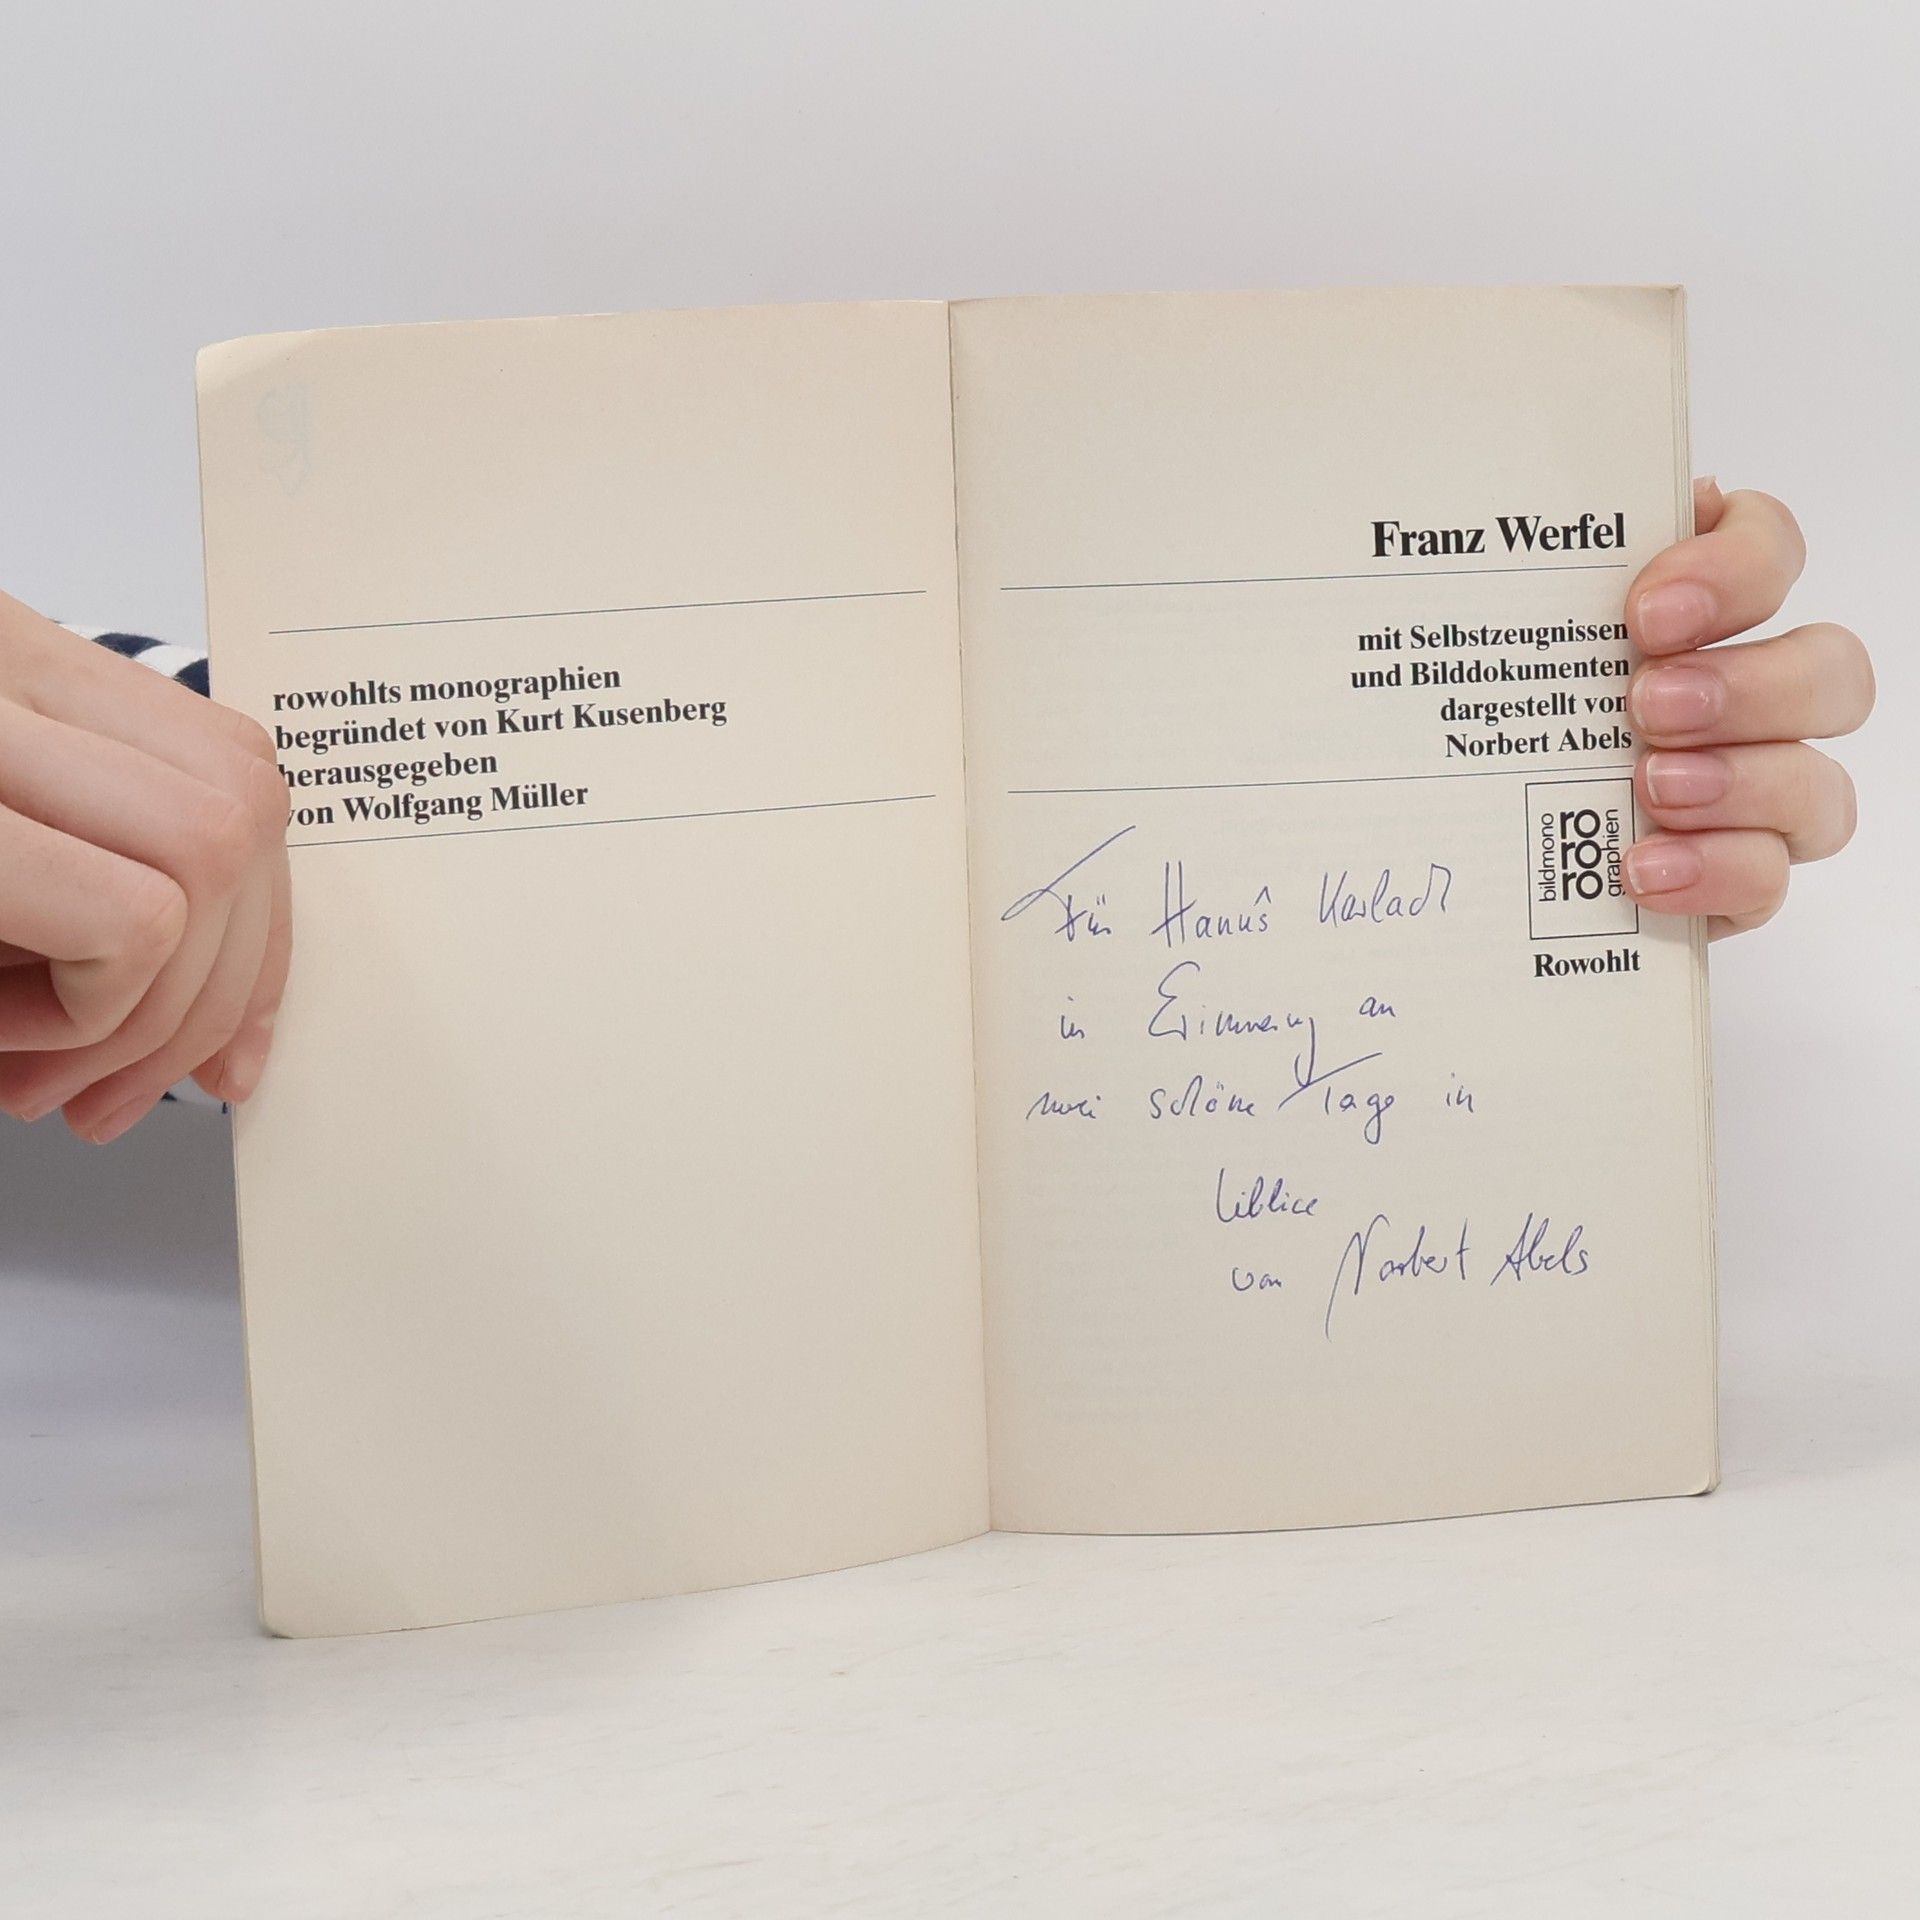 rowohlts monographien
begründet von Kurt Kusenberg
herausgegeben
von Wolfgang Müller
Franz Werfel
mit Selbstzeugnissen
und Bilddokumenten
dargestellt von
Norbert Abels
bildmono
rororo
graphien
Rowohlt
Für Hanuš Karlach
in Erinnerung an
zwei schöne Tage in
Liblice
von Norbert Abels